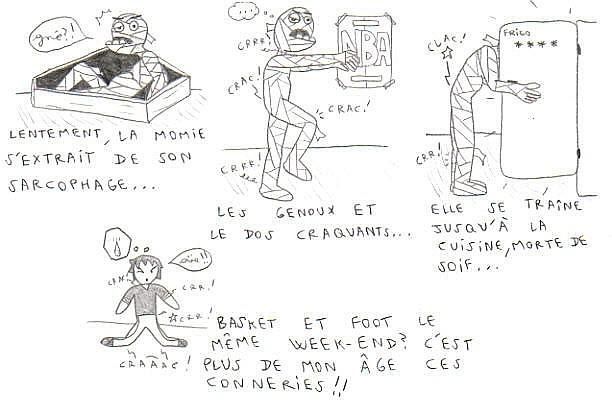 gné?!
LENTEMENT, LA MOMIE
S'EXTRAIT DE SON
SARCOPHAGE...
...
CRRR!
CRAC!
CRAC!
CRRR!
NBA
LES GENOUX ET
LE DOS CRAQUANTS...
FRIGO
****
CLAC!
CRR!
ELLE SE TRAÎNE
JUSQU'À LA
CUISINE, MORTE DE
SOIF...
aïe!!
CRR!
CRR!
CRAÂÂC!
BASKET ET FOOT LE
MÊME WEEK-END? C'EST
PLUS DE MON ÂGE CES
CONNERIES!!